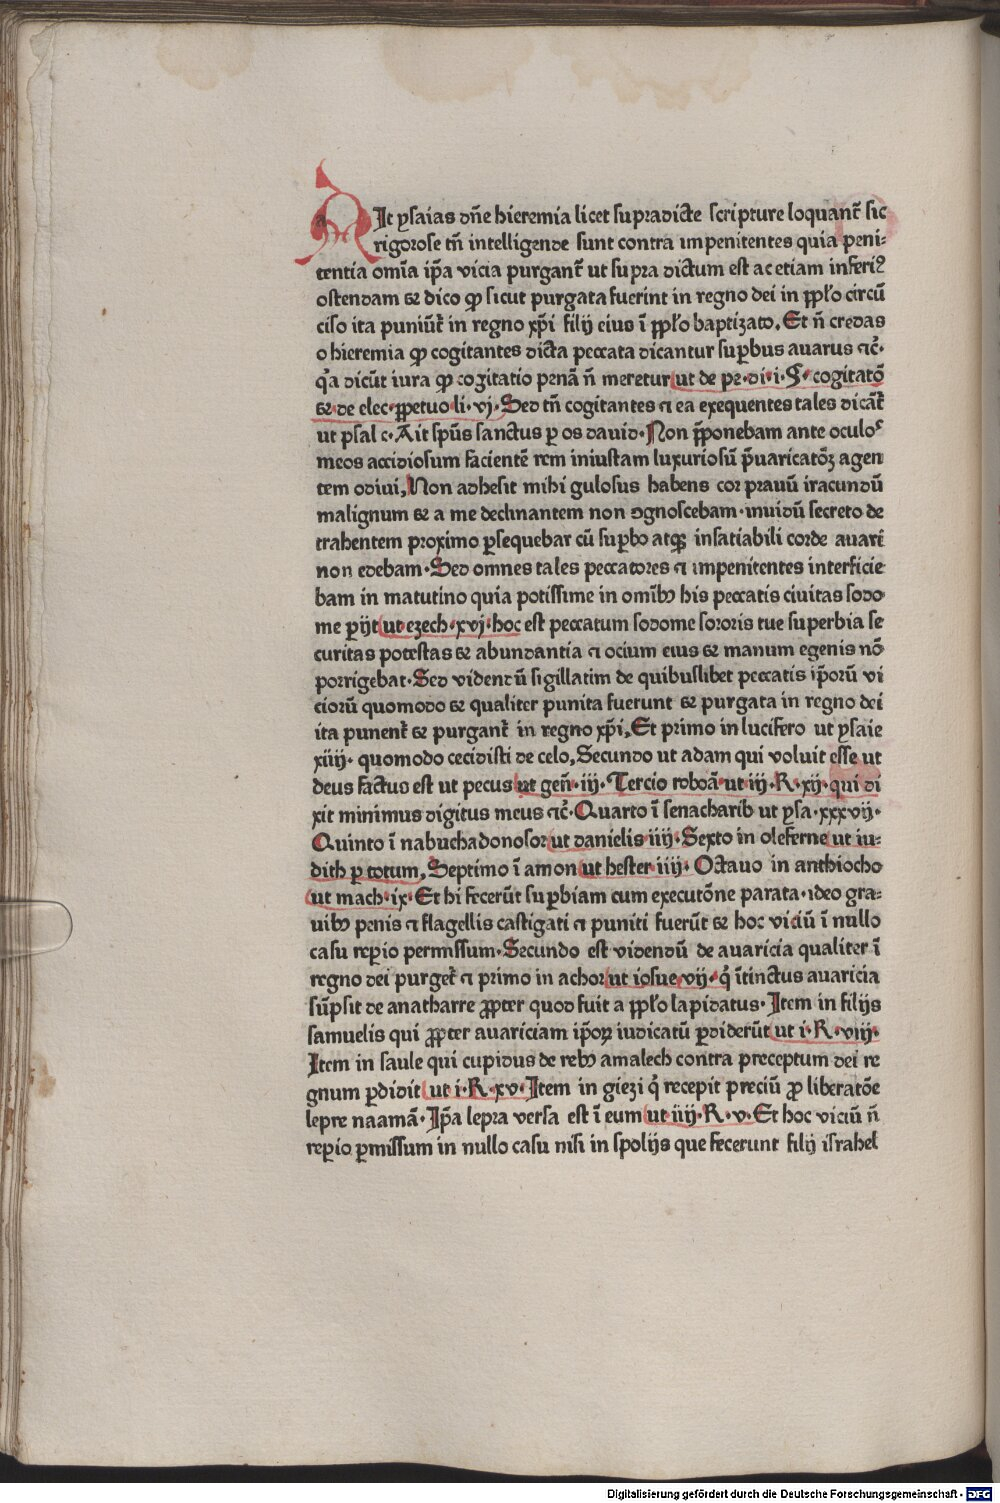 AIt ysaias dñe hieremia licet supradicte scripture loquanť sic
rigorose tñ intelligende sunt contra impenitentes quia peni⸗
tentia omīa ip̃a vicia purganť ut supra dictum est ac etiam inferiꝰ
ostendam ⁊ dico ꝙ sicut purgata fuerint in regno dei in ꝓp̃lo circū
ciso ita puniũť in regno xp̃i filij eius ī ꝓp̃lo baptizato. Et ñ credas
o hieremia ꝙ cogitantes dicta peccata dicantur suꝑbus auarus ⁊c̃·
q̃a dicũt iura ꝙ cogitatio penã ñ meretur ut de pe·di·i·§·cogitatõ
⁊ de elec·ꝑpetuo li·vj·Sed tñ cogitantes ⁊ ea exequentes tales dicãť
ut psal c·Ait spũs sanctus ꝑ os dauid·Non ꝓponebam ante oculoˢ
meos accidiosum facientẽ rem iniustam luxuriosũ p̃uaricatõꝫ agen
tem odiui, Non adhesit mihi gulosus habens cor prauũ iracundũ
malignum ⁊ a me declinantem non ꝯgnoscebam·inuidũ secreto de
trahentem proximo ꝑsequebar cũ suꝑbo atqꝫ insatiabili corde auari
non edebam·Sed omnes tales peccatores ⁊ impenitentes interficie
bam in matutino quia potissime in omĩbꝰ his peccatis ciuitas sodo
me ꝑijt ut ezech·xvj·hoc est peccatum sodome sororis tue superbia se
curitas potestas ⁊ abundantia ⁊ ocium eius ⁊ manum egenis nõ
porrigebat·Sed videndũ sigillatim de quibuslibet peccatis ip̃orũ vi
ciorũ quomodo ⁊ qualiter punita fuerunt ⁊ purgata in regno dei
ita punenť ⁊ purganť in regno xp̃i, Et primo in lucifero ut ysaie
xiiij· quomodo cecidisti de celo, Secundo ut adam qui voluit esse ut
deus factus est ut pecus ut geñ·iij·Tercio roboã ut iij·R·xij·qui di
xit minimus digitus meus ⁊c̃·Quarto ī senacharib ut ysa·xxxvij·
Quinto ī nabuchadonosor ut danielis iiij·Sexto in oleferne ut iu⸗
dith ꝑ totum, Septimo ī amon ut hester iiij· Octauo in anthiocho
ut mach·ix·Et hi fecerũt suꝑbiam cum executõne parata·ideo gra⸗
uibꝰ penis ⁊ flagellis castigati ⁊ puniti fuerũt ⁊ hoc viciũ ī nullo
casu reꝑio permissum·Secundo est videndũ de auaricia qualiter ī
regno dei purgeť ⁊ primo in achor ut iosue vij·q̇ ītinctus auaricia
sũpsit de anatharre ꝓpter quod fuit a ꝓp̃lo lapidatus·Item in filijs
samuelis qui ꝓpter auariciam ip̃oꝝ iudicatũ ꝑdiderũt ut i·R·viij·
Item in saule qui cupidus de rebꝰ amalech contra preceptum dei re
gnum ꝑdidit ut i·R·xv·Item in giezi q̇ recepit preciũ ꝓ liberatõe
lepre naamã·Ip̃a lepra versa est ī eum ut iiij·R·v·Et hoc viciũ ñ
reꝑio ꝑmissum in nullo casu nisi in spolijs que fecerunt filij israhel
Digitalisierung gefördert durch die Deutsche Forschungsgemeinschaft - DFG